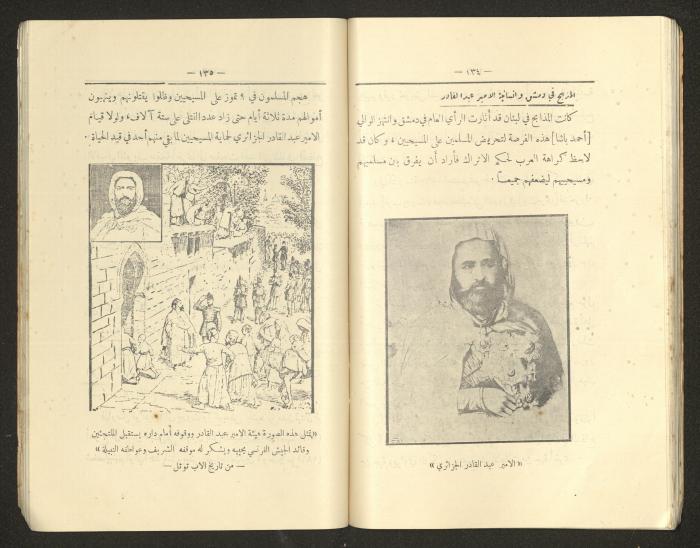 — ١٣٤ —
المذابح في دمشق وانسانية الامير عبد القادر
كانت المذابح في لبنان قد أثارت الرأي العام في دمشق وانتهز الوالي
[أحمد باشا] هذه الفرصة لتحريض المسلمين على المسيحيين ، وكان قد
لاحظ كراهة العرب لحكم الاتراك فأراد أن يفرق بين مسلميهم
ومسيحييهم ليضعفهم جميعاً .
« الامير عبد القادر الجزائري »
— ١٣٥ —
هجم المسلمون في ٩ تموز على المسيحيين وظلوا يقتلونهم وينهبون
أموالهم مدة ثلاثة أيام حتى زاد عدد القتلى على ستة آلاف، ولولا قيام
الامير عبد القادر الجزائري لحماية المسيحيين لما بقي منهم أحد في قيد الحياة .
«تمثل هذه الصورة هيئة الامير عبد القادر ووقوفه أمام داره يستقبل الملتجئين
وقائد الجيش الفرنسي يحييه ويشكر له موقفه الشريف وعواطفه النبيلة»
— من تاريخ الاب توتل —